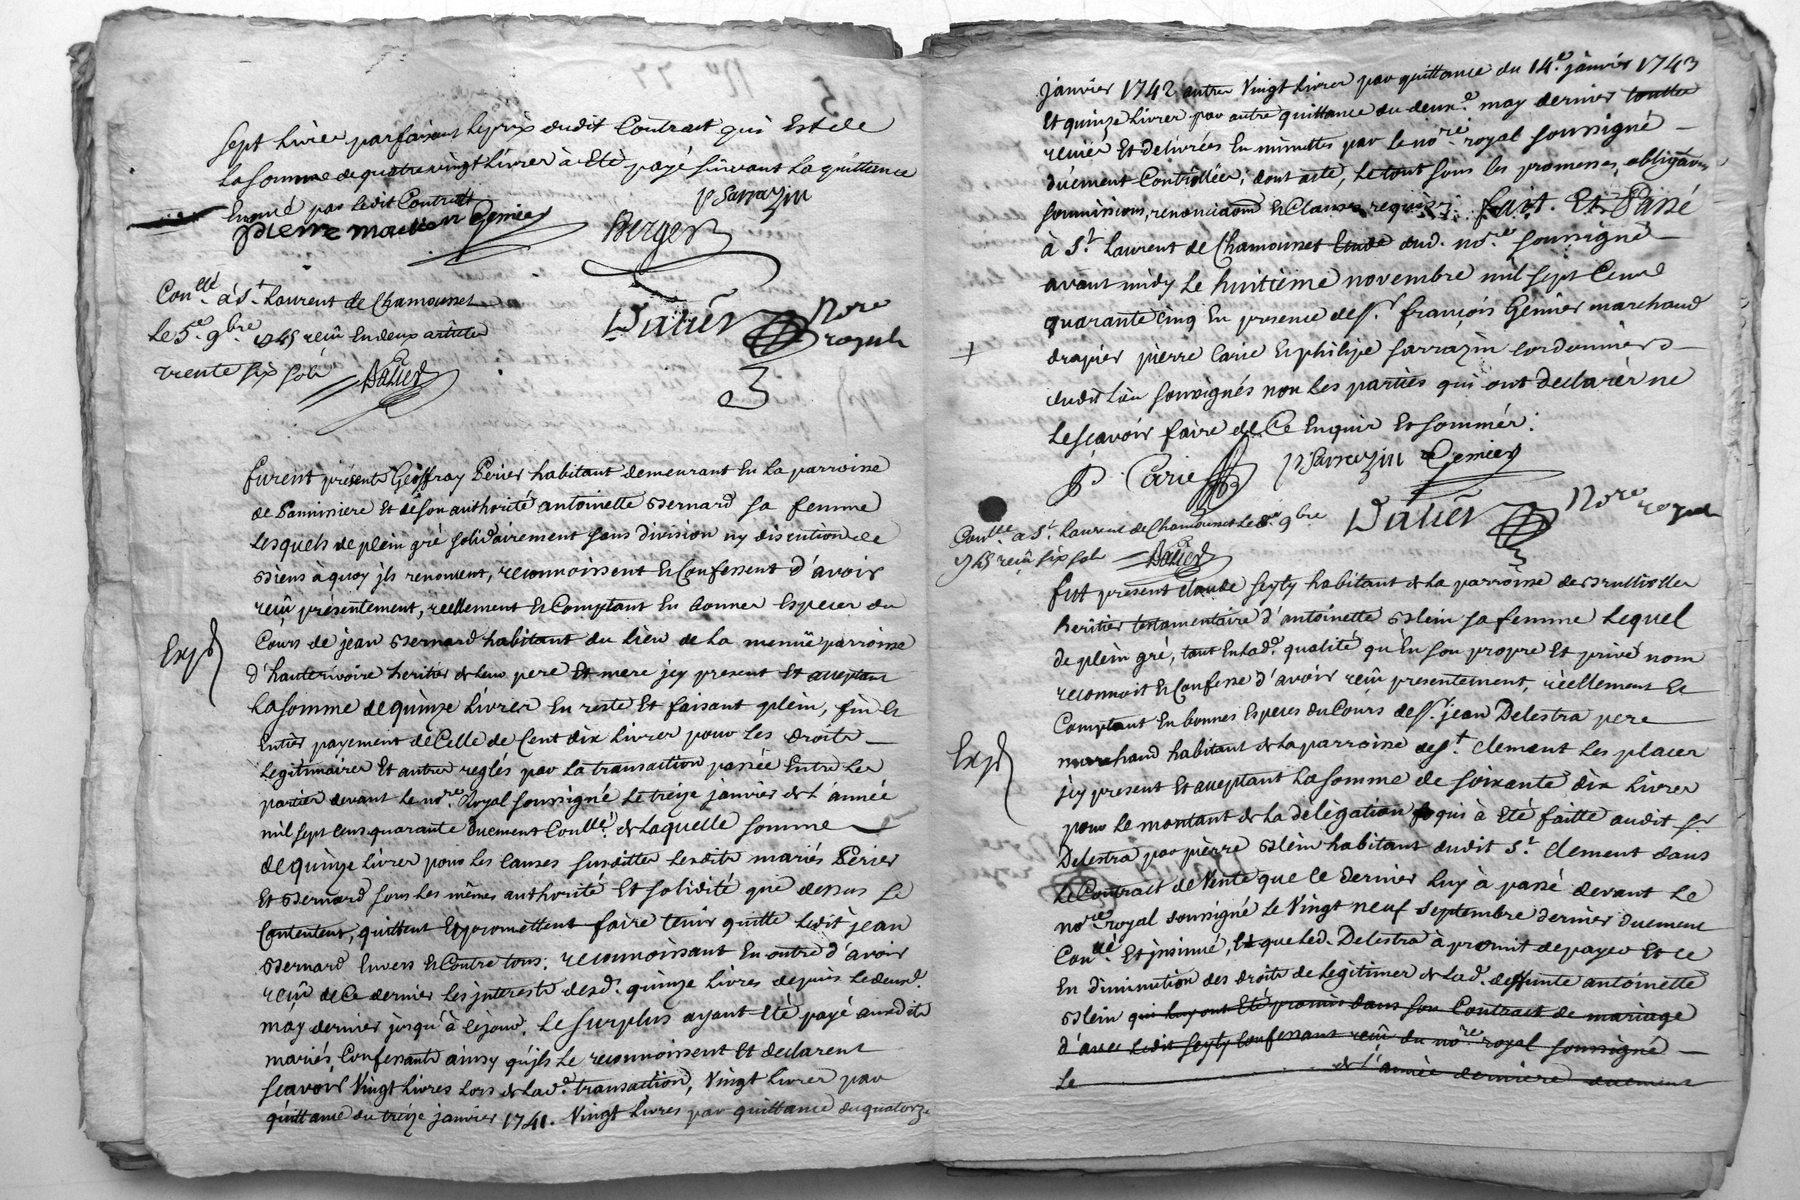 Sept livres parfaisant le prix dudit Contract qui Est de
La somme de quatre vingt livres à Eté payé suivant la quittance
Enoncé par ledit Contract
p Sarrazin
pierre Genier
Berger
Con.llé à S.t Laurent de Chamousset
Le 5.e 9bre 1745 reçû En deux articles
trente six sols
Dalier Nore
royal
Dalier
furent présents Geoffray Perier habitant demeurant En La parroisse
de Panissiere Et de son authorité antoinette Bernard sa femme
Lesquels de plein gré solidairement sans division ny discution de
Biens à quoy jls renoncent, reconnoissent Et Confessent d'avoir
reçû présentement, réellement Et Comptant En bonnes Especes du
Cours de jean Bernard habitant du lieu de La menüe parroisse
d'hauterivoire heritier de Leurs pere Et mere jcy present Et acceptant
La somme de quinze livres En reste Et faisant plein, fin Et
Entier payement de Celle de Cent dix livres pour les droits
Legitimaires Et autres reglés par La transaction passée Entre les
parties devant le no.re Royal soussigné Le treize janvier de L'année
mil sept cens quarante duement Con.llé, de Laquelle somme
de quinze livres pour les causes susdittes lesdits mariés Périer
Et Bernard sous les mêmes authorité Et solidité que dessus se
Contentent, quittent Et promettent faire tenir quitte ledit jean
Bernard Envers Et Contre tous; reconnoissant En outre d'avoir
reçû de Ce dernier les jnterests desd. quinze livres depuis le deux.e
may dernier jusqu'à Cejour, Le surplus ayant Eté payé auxdits
mariés, Confessants ainsy qu'jls Le reconnoissent Et declarent
sçavoir Vingt livres Lors de La d.e transaction, Vingt livres par
quittance du treize janvier 1741. Vingt livres par quittance du quatorze
Expd
janvier 1742 autres Vingt livres par quittance du 14.e janvier 1743
Et quinze livres par autre quittance du deux.e may dernier touttes
reçües Et delivrées En minuttes par le no.re royal soussigné
düement Controllées; dont acte, Le tout sous les promesses, obligâons
soumissions, renonciaôns Et Clauses requises. fait Et Passé
à S.t Laurent de Chamousset Etude dud. no.re soussigné
avant midy Le huitième novembre mil sept Cens
quarante cinq En presence de s.r françois Génier marchand
drapier pierre Carie Et philipe Sarrazin Cordonniers
dudit Lieu soussignés non Les parties qui ont declarér ne
Le sçavoir faire de Ce Enquis Et sommés.
P. Carie p Sarrazin Genier
Dalier Nore
royal
Con.llé à S.t Laurent de Chamousset Le 8.e 9bre
1745 reçû six sols Dalier
fut present Claude Seyty habitant de La parroisse de Brullioles
heritier testamentaire d'antoinette Blein sa femme Lequel
de plein gré, tant En lad.e qualité qu'En son propre Et privé nom
reconnoit Et Confesse d'avoir reçû presentement, réellement Et
Comptant En bonnes Especes du Cours de s.r jean Delestra pere
marchand habitant de La parroisse de S.t Clement Les places
jcy present Et acceptant La somme de soixante dix livres
pour Le montant de La délégation qui à Eté faitte audit S.r
Delestra par pierre Blein habitant dudit S.t Clement dans
Le Contract de Vente que Ce dernier luy à passé devant Le
no.re royal soussigné Le Vingt neuf septembre dernier düement
Con.llé Et jnsinué, Et que led. Delestra à promit de payer Et ce
En diminution des droits de Legitimes de Lad. deffunte antoinette
Blein qui luy ont Eté promis dans son Contract de mariage
d'avec Ledit Seyty Confessant reçû du no.re royal soussigné
Le de L'année derniere duement
Expd